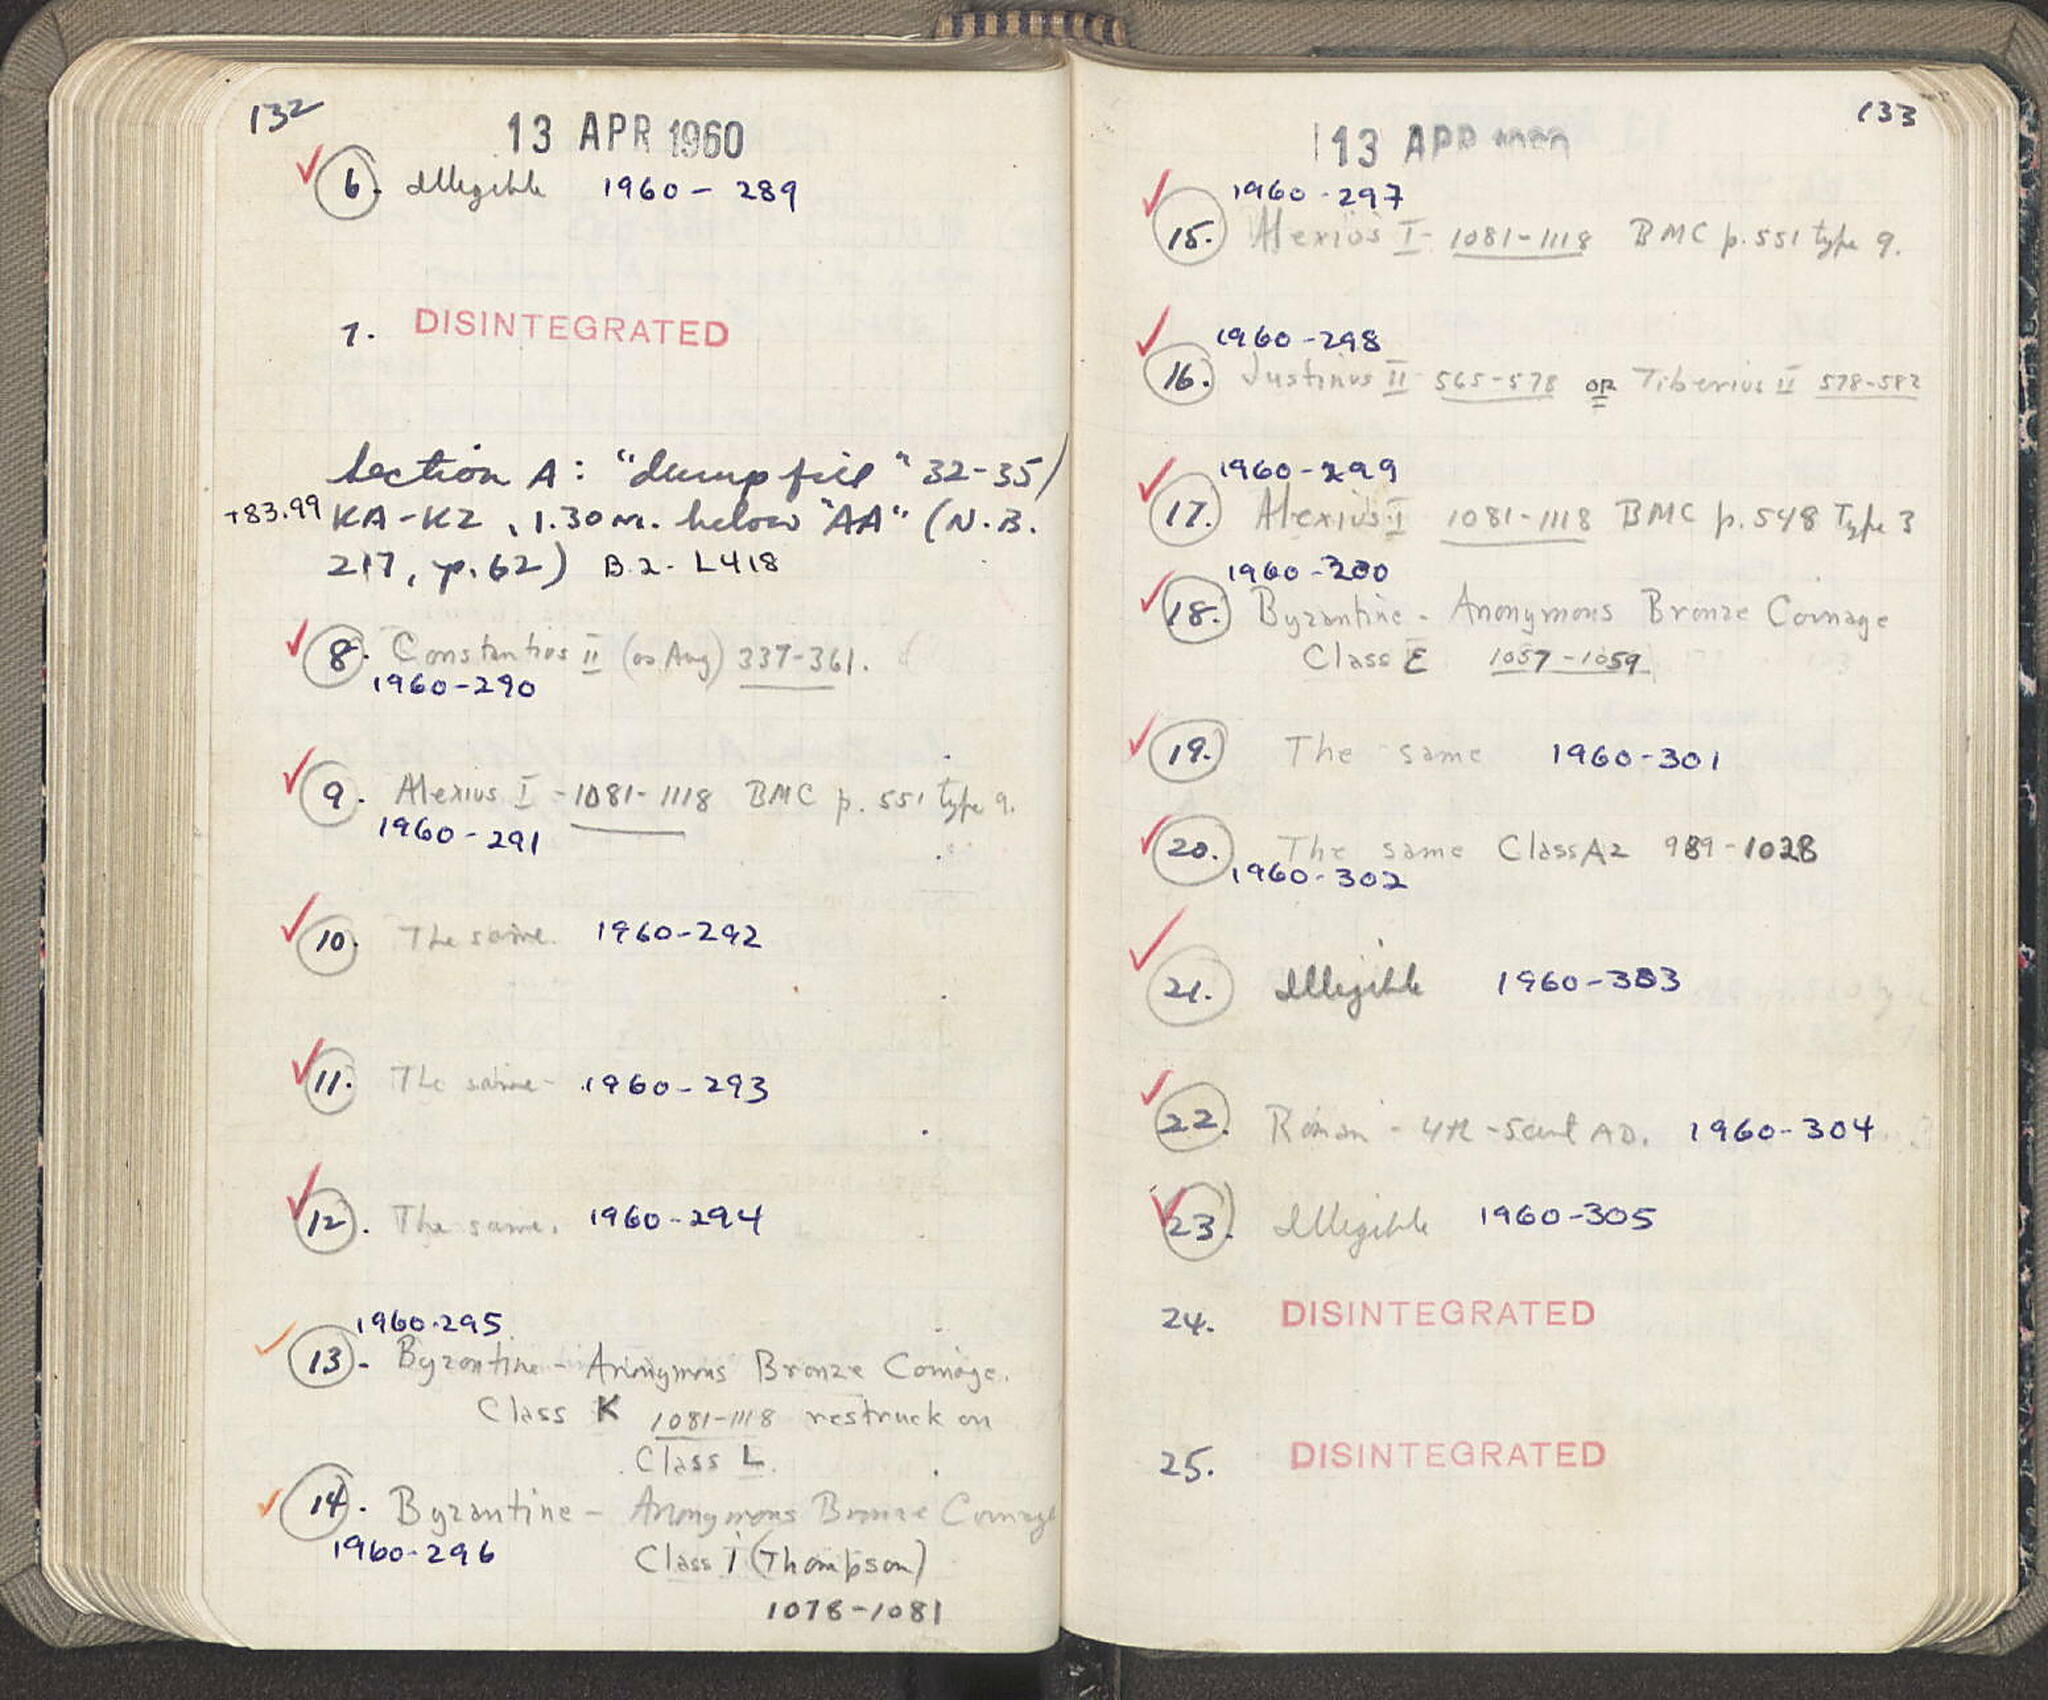 132
13 APR 1960
6. Illegible 1960-289
7. DISINTEGRATED
Section A: "dump fill" 32-35/
+83.99 KA-KZ, 1.30 m. below "AA" (N.B.
217, p. 62) B.2. L418
8. Constantius II (as Aug) 337-361.
1960-290
9. Alexius I - 1081-1118 BMC p. 551 type 9.
1960-291
10. The same. 1960-292
11. The same - 1960-293
12. The same. 1960-294
1960-295
13. Byzantine - Anonymous Bronze Coinage.
Class K 1081-1118 restruck on
Class L.
14. Byzantine - Anonymous Bronze Coinage
1960-296 Class I (Thompson)
1078-1081
133
13 APR
1960-297
15. Alexios I - 1081-1118 BMC p. 551 type 9.
1960-298
16. Justinus II 565-578 OR Tiberius II 578-582
1960-299
17. Alexius I 1081-1118 BMC p. 548 Type 3
1960-300
18. Byzantine - Anonymous Bronze Coinage
Class E 1057-1059
19. The same 1960-301
20. The same Class A2 989-1028
1960-302
21. Illegible 1960-303
22. Roman - 4th-5 cent AD. 1960-304
23. Illegible 1960-305
24. DISINTEGRATED
25. DISINTEGRATED